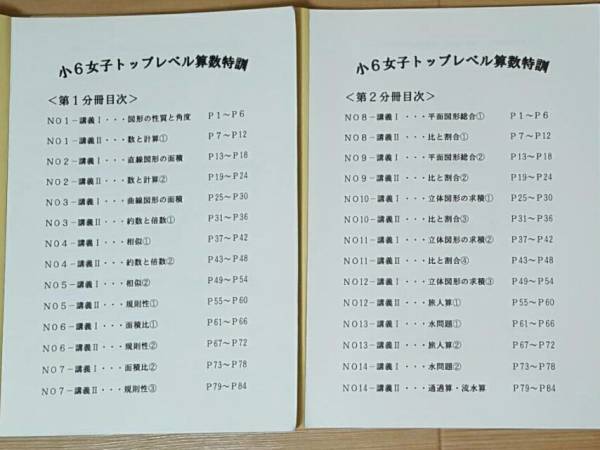 小6女子トップレベル算数特訓
<第1分冊目次>
NO1-講義Ⅰ・・・図形の性質と角度 P1~P6
NO1-講義Ⅱ・・・数と計算① P7~P12
NO2-講義Ⅰ・・・直線図形の面積 P13~P18
NO2-講義Ⅱ・・・数と計算② P19~P24
NO3-講義Ⅰ・・・曲線図形の面積 P25~P30
NO3-講義Ⅱ・・・約数と倍数① P31~P36
NO4-講義Ⅰ・・・相似① P37~P42
NO4-講義Ⅱ・・・約数と倍数② P43~P48
NO5-講義Ⅰ・・・相似② P49~P54
NO5-講義Ⅱ・・・規則性① P55~P60
NO6-講義Ⅰ・・・面積比① P61~P66
NO6-講義Ⅱ・・・規則性② P67~P72
NO7-講義Ⅰ・・・面積比② P73~P78
NO7-講義Ⅱ・・・規則性③ P79~P84
小6女子トップレベル算数特訓
<第2分冊目次>
NO8-講義Ⅰ・・・平面図形総合① P1~P6
NO8-講義Ⅱ・・・比と割合① P7~P12
NO9-講義Ⅰ・・・平面図形総合② P13~P18
NO9-講義Ⅱ・・・比と割合② P19~P24
NO10-講義Ⅰ・・・立体図形の求積① P25~P30
NO10-講義Ⅱ・・・比と割合③ P31~P36
NO11-講義Ⅰ・・・立体図形の求積② P37~P42
NO11-講義Ⅱ・・・比と割合④ P43~P48
NO12-講義Ⅰ・・・立体図形の求積③ P49~P54
NO12-講義Ⅱ・・・旅人算① P55~P60
NO13-講義Ⅰ・・・水問題① P61~P66
NO13-講義Ⅱ・・・旅人算② P67~P72
NO14-講義Ⅰ・・・水問題② P73~P78
NO14-講義Ⅱ・・・通過算・流水算 P79~P84